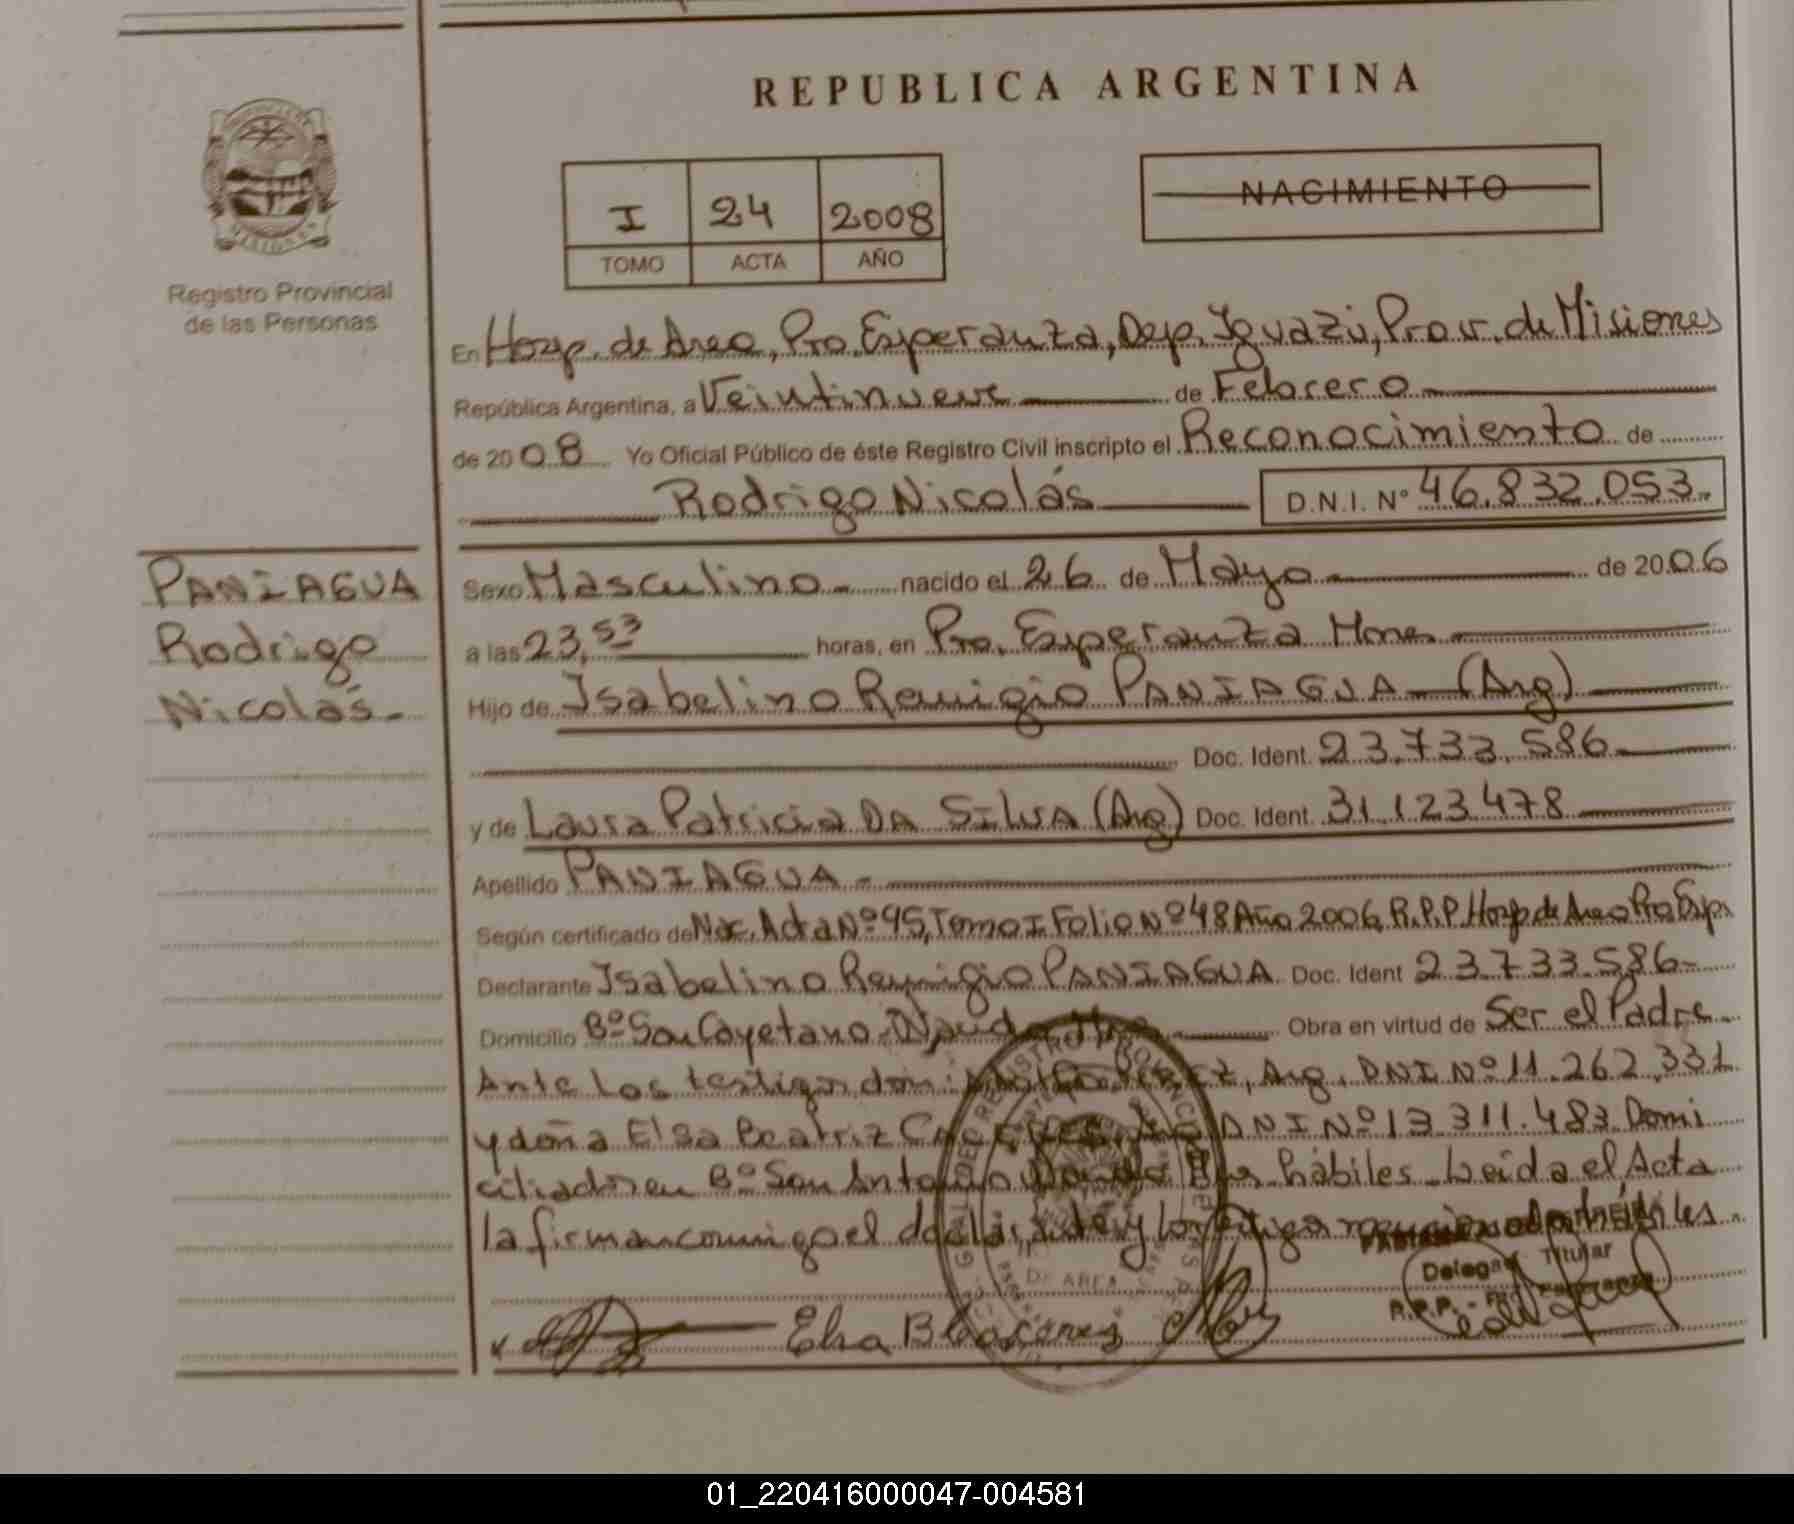 REPUBLICA ARGENTINA
I 24 2008
TOMO ACTA AÑO
NACIMIENTO
Registro Provincial
de las Personas
En Hosp. de Area, Pto. Esperanza, Dep. Iguazú, Prov. de Misiones
República Argentina, a Veintinueve de Febrero
de 2008 Yo Oficial Público de éste Registro Civil inscripto el Reconocimiento de
Rodrigo Nicolás D.N.I. Nº 46.832.053
PANIAGUA
Rodrigo
Nicolás.-
Sexo Masculino nacido el 26 de Mayo de 2006
a las 23,53 horas, en Pto. Esperanza Mnes
Hijo de Isabelino Remigio PANIAGUA (Arg)
Doc. Ident. 23.733.586
y de Laura Patricia DA SILVA (Arg) Doc. Ident. 31.123.478
Apellido PANIAGUA
Según certificado de Nac. Acta Nº 95, Tomo I Folio Nº 48 Año 2006, R.P.P. Hosp de Area Pto Esp.
Declarante Isabelino Remigio PANIAGUA Doc. Ident 23.733.586-
Domicilio Bº San Cayetano Obra en virtud de Ser el Padre.
Ante los testigos don: Arg. DNI Nº 11.262.331
y doña Elsa Beatriz DNI Nº 13.311.483 Domi
ciliados en Bº San Antonio hábiles. Leida el Acta
la firman conmigo el declarante y los testigos hábiles.
Delegado Titular
R.P.P. - Pto Esperanza
Elsa B
DE AREA
01_220416000047-004581